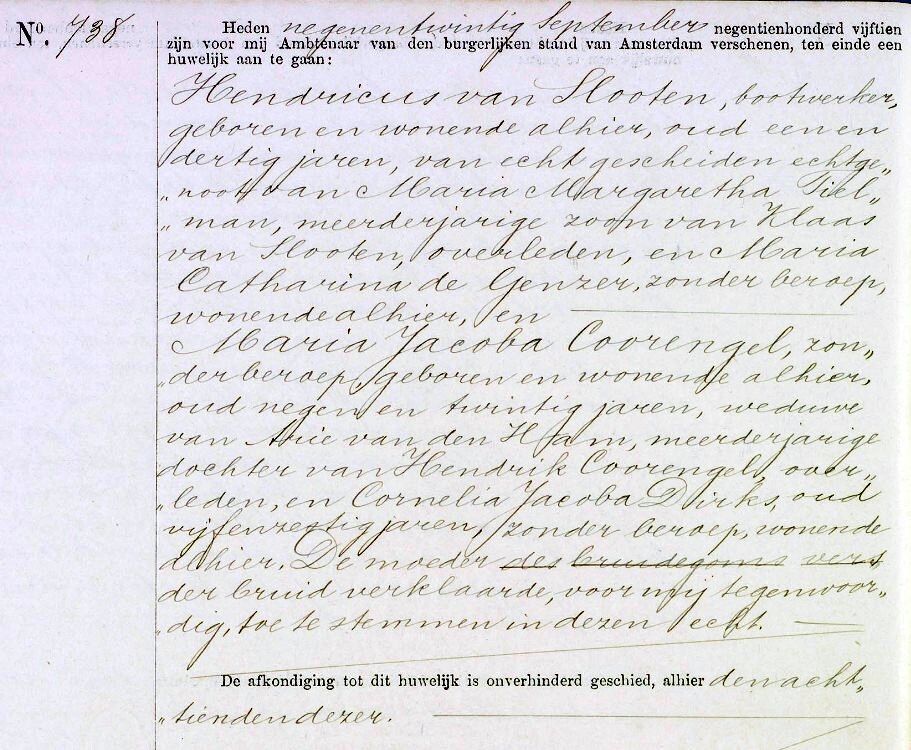 No. 738 Heden negenentwintig September negentienhonderd vijftien
zijn voor mij Ambtenaar van den burgerlijken stand van Amsterdam verschenen, ten einde een
huwelijk aan te gaan:
Hendricus van Slooten, bootwerker,
geboren en wonende alhier, oud een en
dertig jaren, van echt gescheiden echtge„
„noot van Maria Margaretha Tiel„
„man, meerderjarige zoon van Klaas
van Slooten, overleden, en Maria
Catharina de Genzer, zonder beroep,
wonende alhier, en
Maria Jacoba Coorengel, zon„
„der beroep, geboren en wonende alhier,
oud negen en twintig jaren, weduwe
van Arie van den Ham, meerderjarige
dochter van Hendrik Coorengel, over„
„leden, en Cornelia Jacoba Dirks, oud
vijfenzestig jaren, zonder beroep, wonende
alhier. De moeder des bruidegoms vers
der bruid verklaarde, voor mij tegenwoor„
„dig, toe te stemmen in dezen echt.
De afkondiging tot dit huwelijk is onverhinderd geschied, alhier den acht„
„tienden dezer.